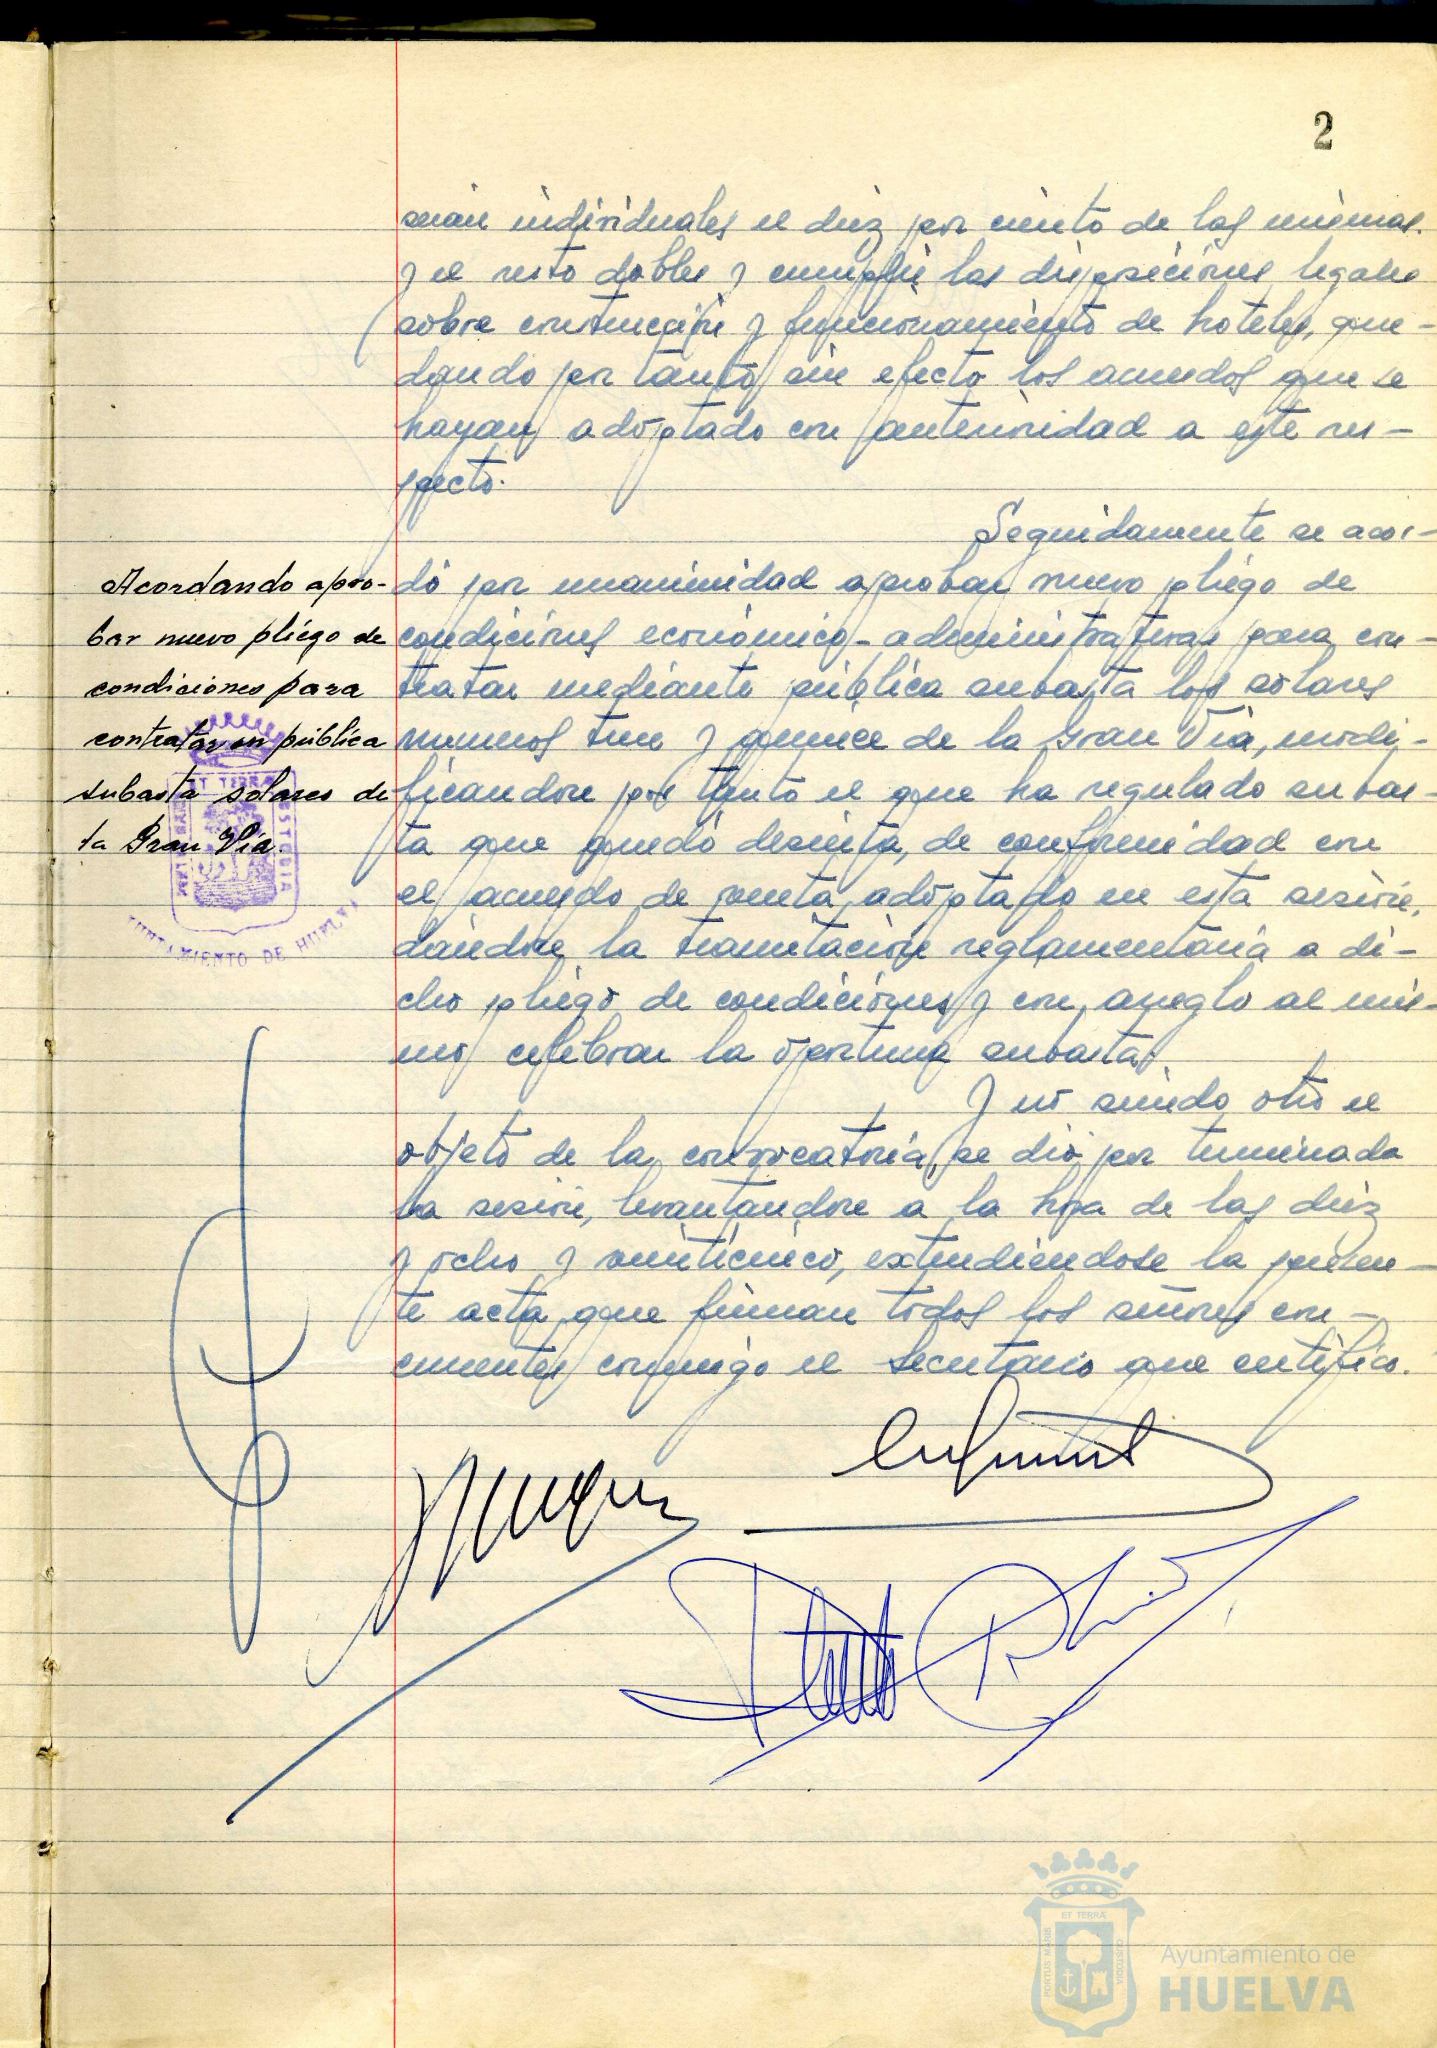 2
serán individuales el diez por ciento de las mismas.
y el resto dobles y cumplir las disposiciones legales
sobre construcción y funcionamiento de hoteles, que-
dando por tanto sin efecto los acuerdos que se
hayan adoptado con anterioridad a este res-
pecto.
Seguidamente se acor-
dó por unanimidad aprobar nuevo pliego de
condiciones económico-administrativas para con-
tratar mediante pública subasta los solares
números trece y quince de la Gran Vía, modi-
ficandose por tanto el que ha regulado subas-
ta que quedó desierta, de conformidad con
el acuerdo de venta adoptado en esta sesión,
dándose la tramitación reglamentaria a di-
cho pliego de condiciones y con arreglo al mis-
mo celebrar la oportuna subasta.
Y no siendo otro el
objeto de la convocatoria, se dió por terminada
la sesión, levantándose a la hora de las diez
y ocho y veinticinco, extendiéndose la presen-
te acta que firman todos los señores con-
currentes conmigo el Secretario que certifico.
Acordando apro-
bar nuevo pliego de
condiciones para
contratar en pública
subasta solares de
la Gran Vía.
ET TERRA
AYUNTAMIENTO DE HUELVA
PORTUS MARIS
ET TERRA
CUSTODIA
Ayuntamiento de
HUELVA